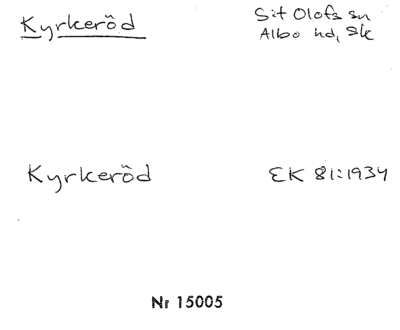 Kyrkeröd
S:t Olofs sn
Albo hd, Sk
Kyrkeröd
EK 81:1934
Nr 15005